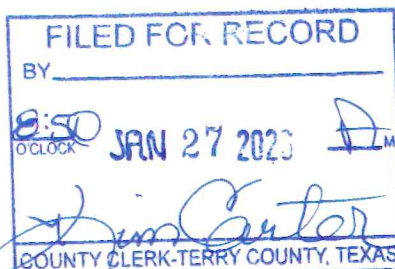 FILED FOR RECORD
BY
8:50 JAN 27 A M
O'CLOCK
Kim Carter
COUNTY CLERK-TERRY COUNTY, TEXAS